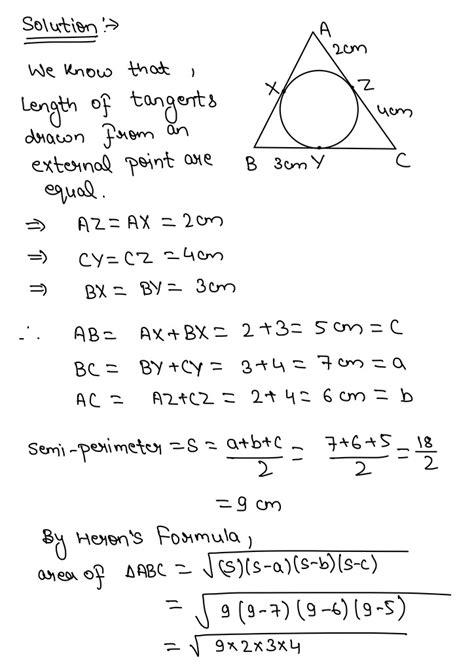 Solution :→
We know that ,
Length of tangents
drawn from an
external point are
equal.
A
2cm
X
Z
4cm
B 3cm Y C
⇒ AZ = AX = 2cm
⇒ CY = CZ = 4cm
⇒ BX = BY = 3cm
∴ AB = AX + BX = 2 + 3 = 5 cm = C
BC = BY + CY = 3 + 4 = 7 cm = a
AC = AZ + CZ = 2 + 4 = 6 cm = b
Semi-perimeter = S = (a+b+c)/2 = (7+6+5)/2 = 18/2
= 9 cm
By Heron's Formula,
area of ΔABC = √(S)(S-a)(S-b)(S-c)
= √9(9-7)(9-6)(9-5)
= √9×2×3×4